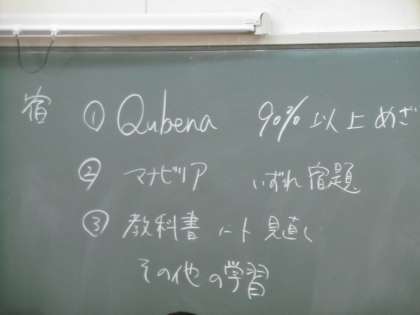 宿 ① Qubena 90%以上めざ
② マナビリア いずれ宿題
③ 教科書 ノート 見直し
その他の学習